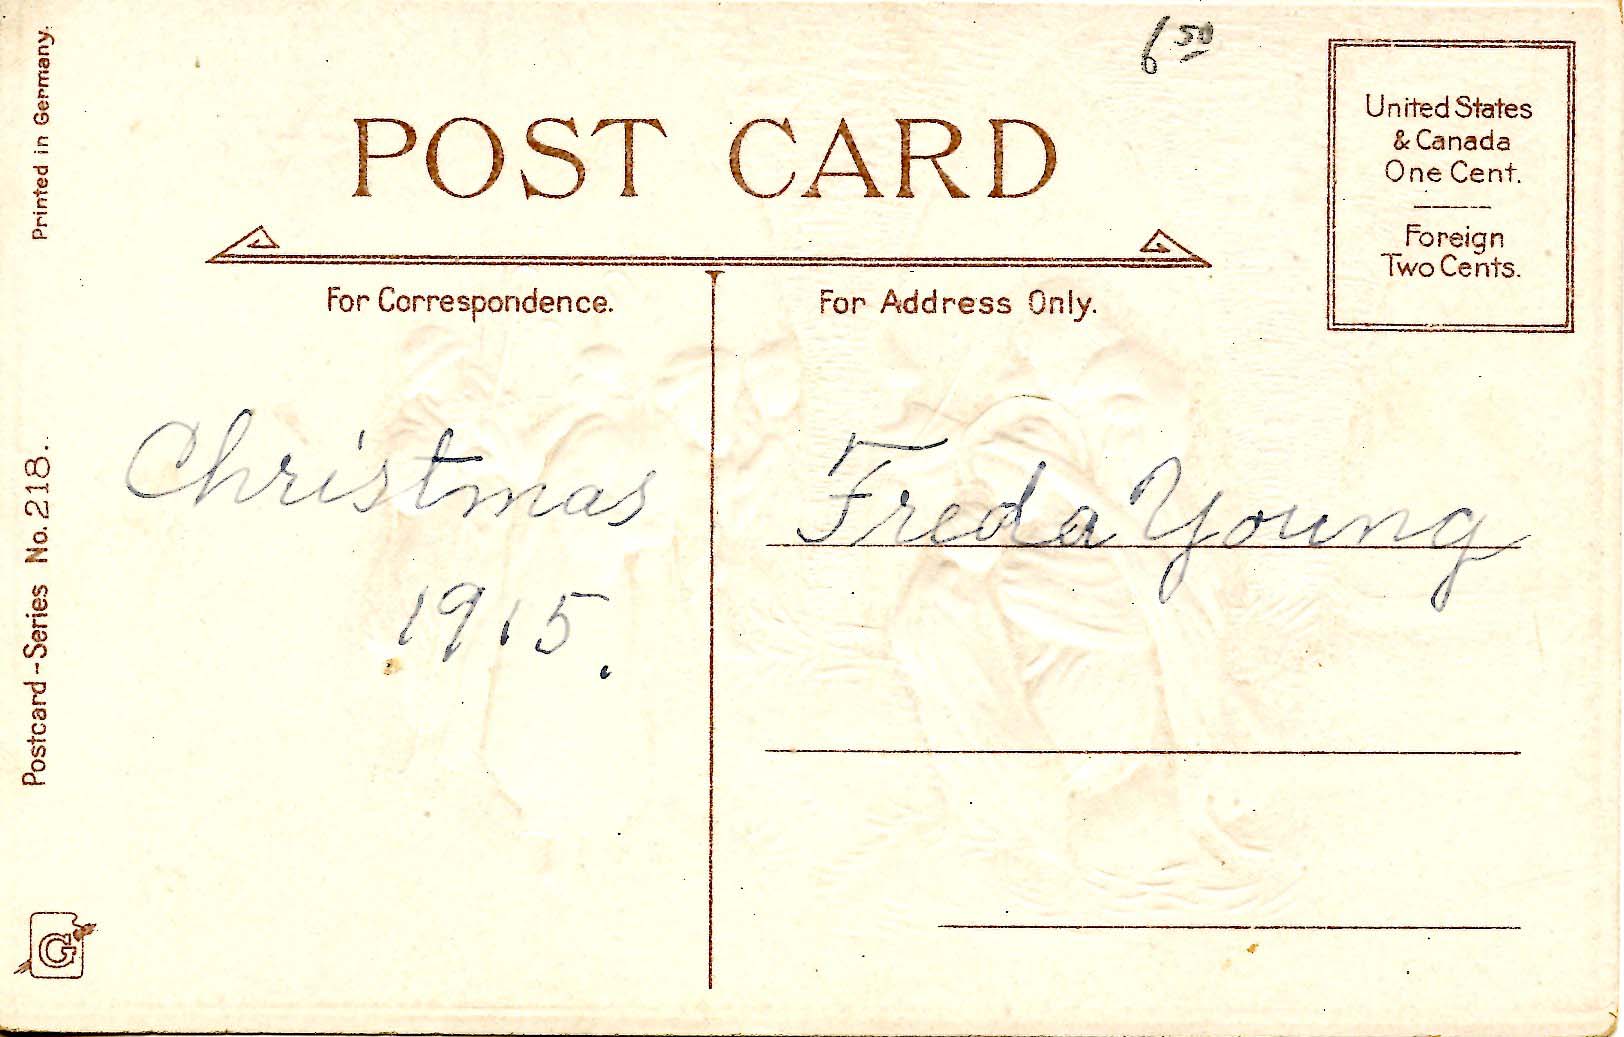 Printed in Germany.
6 50
POST CARD
United States
& Canada
One Cent.
Foreign
Two Cents.
For Correspondence.
For Address Only.
Christmas
1915.
Freda Young
Postcard-Series No. 218.
G